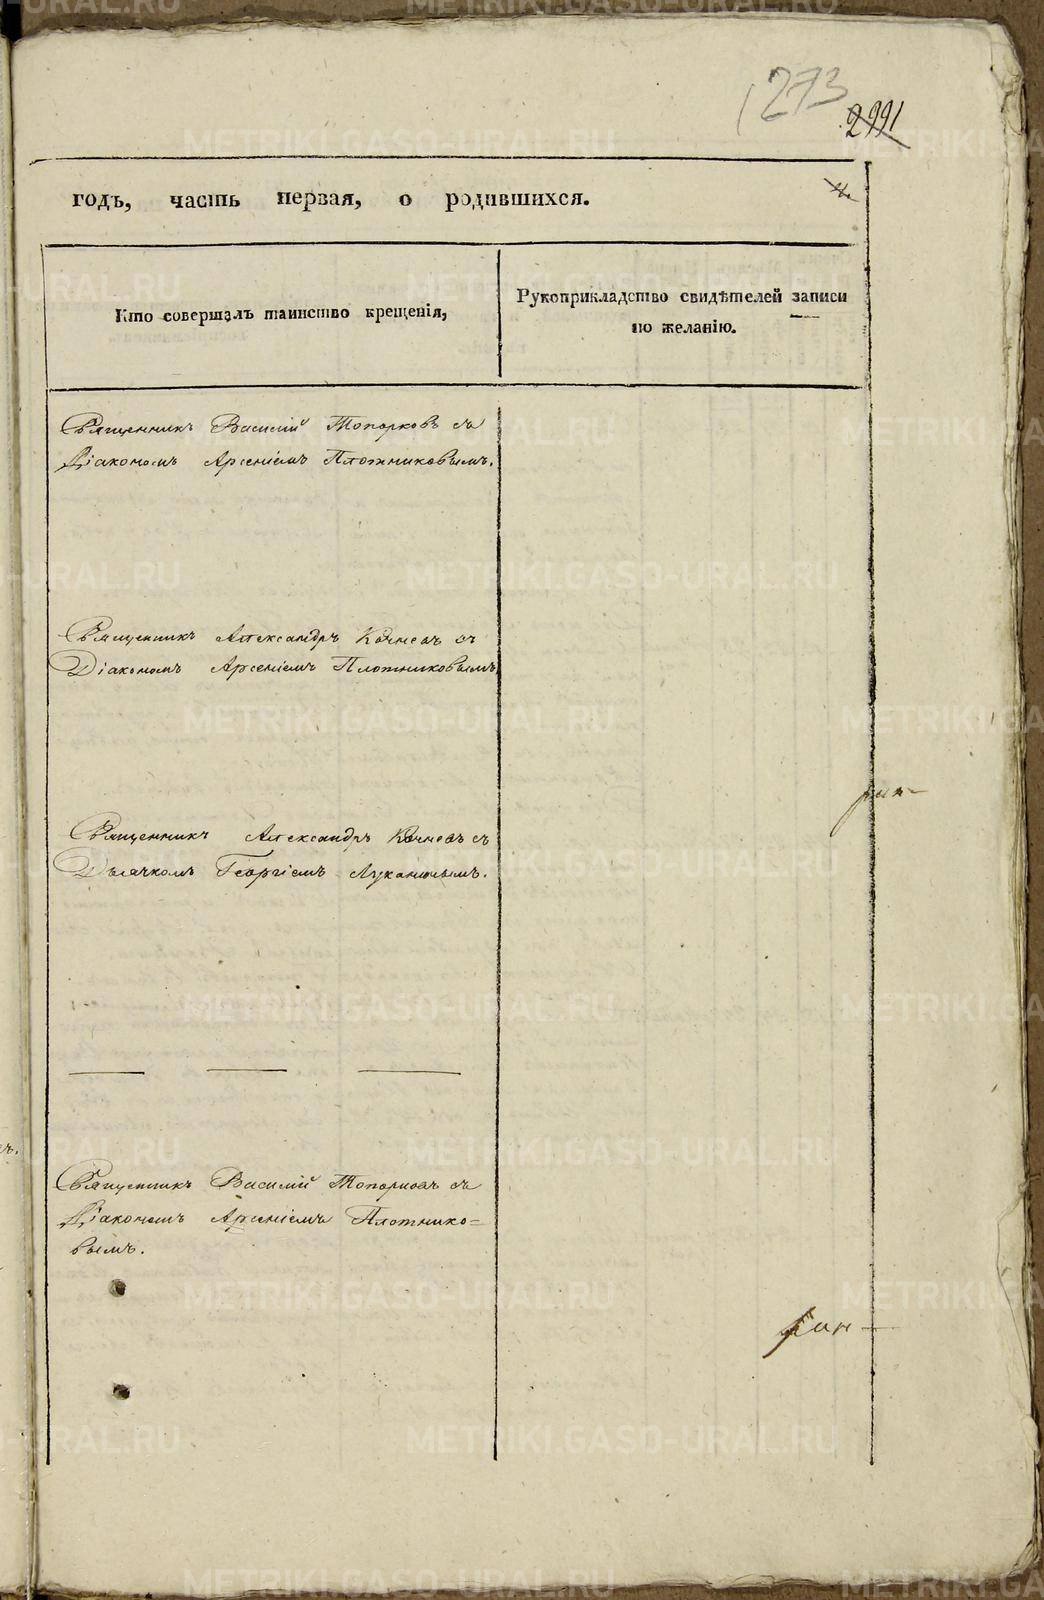 273
2991
годъ, часть первая, о родившихся.
Кто совершалъ таинство крещенія,
Рукоприкладство свидѣтелей записи
по желанію.
Священникъ Василій Топорковъ съ
Діакономъ Арсеніемъ Плотниковымъ.
Священникъ Александръ Кочневъ съ
Діакономъ Арсеніемъ Плотниковымъ
Священникъ Александръ Кочневъ съ
Дьячкомъ Георгіемъ Луканинымъ.
Священникъ Василій Топорковъ съ
Діакономъ Арсеніемъ Плотнико=
вымъ.
METRIKI.GASO-URAL.RU